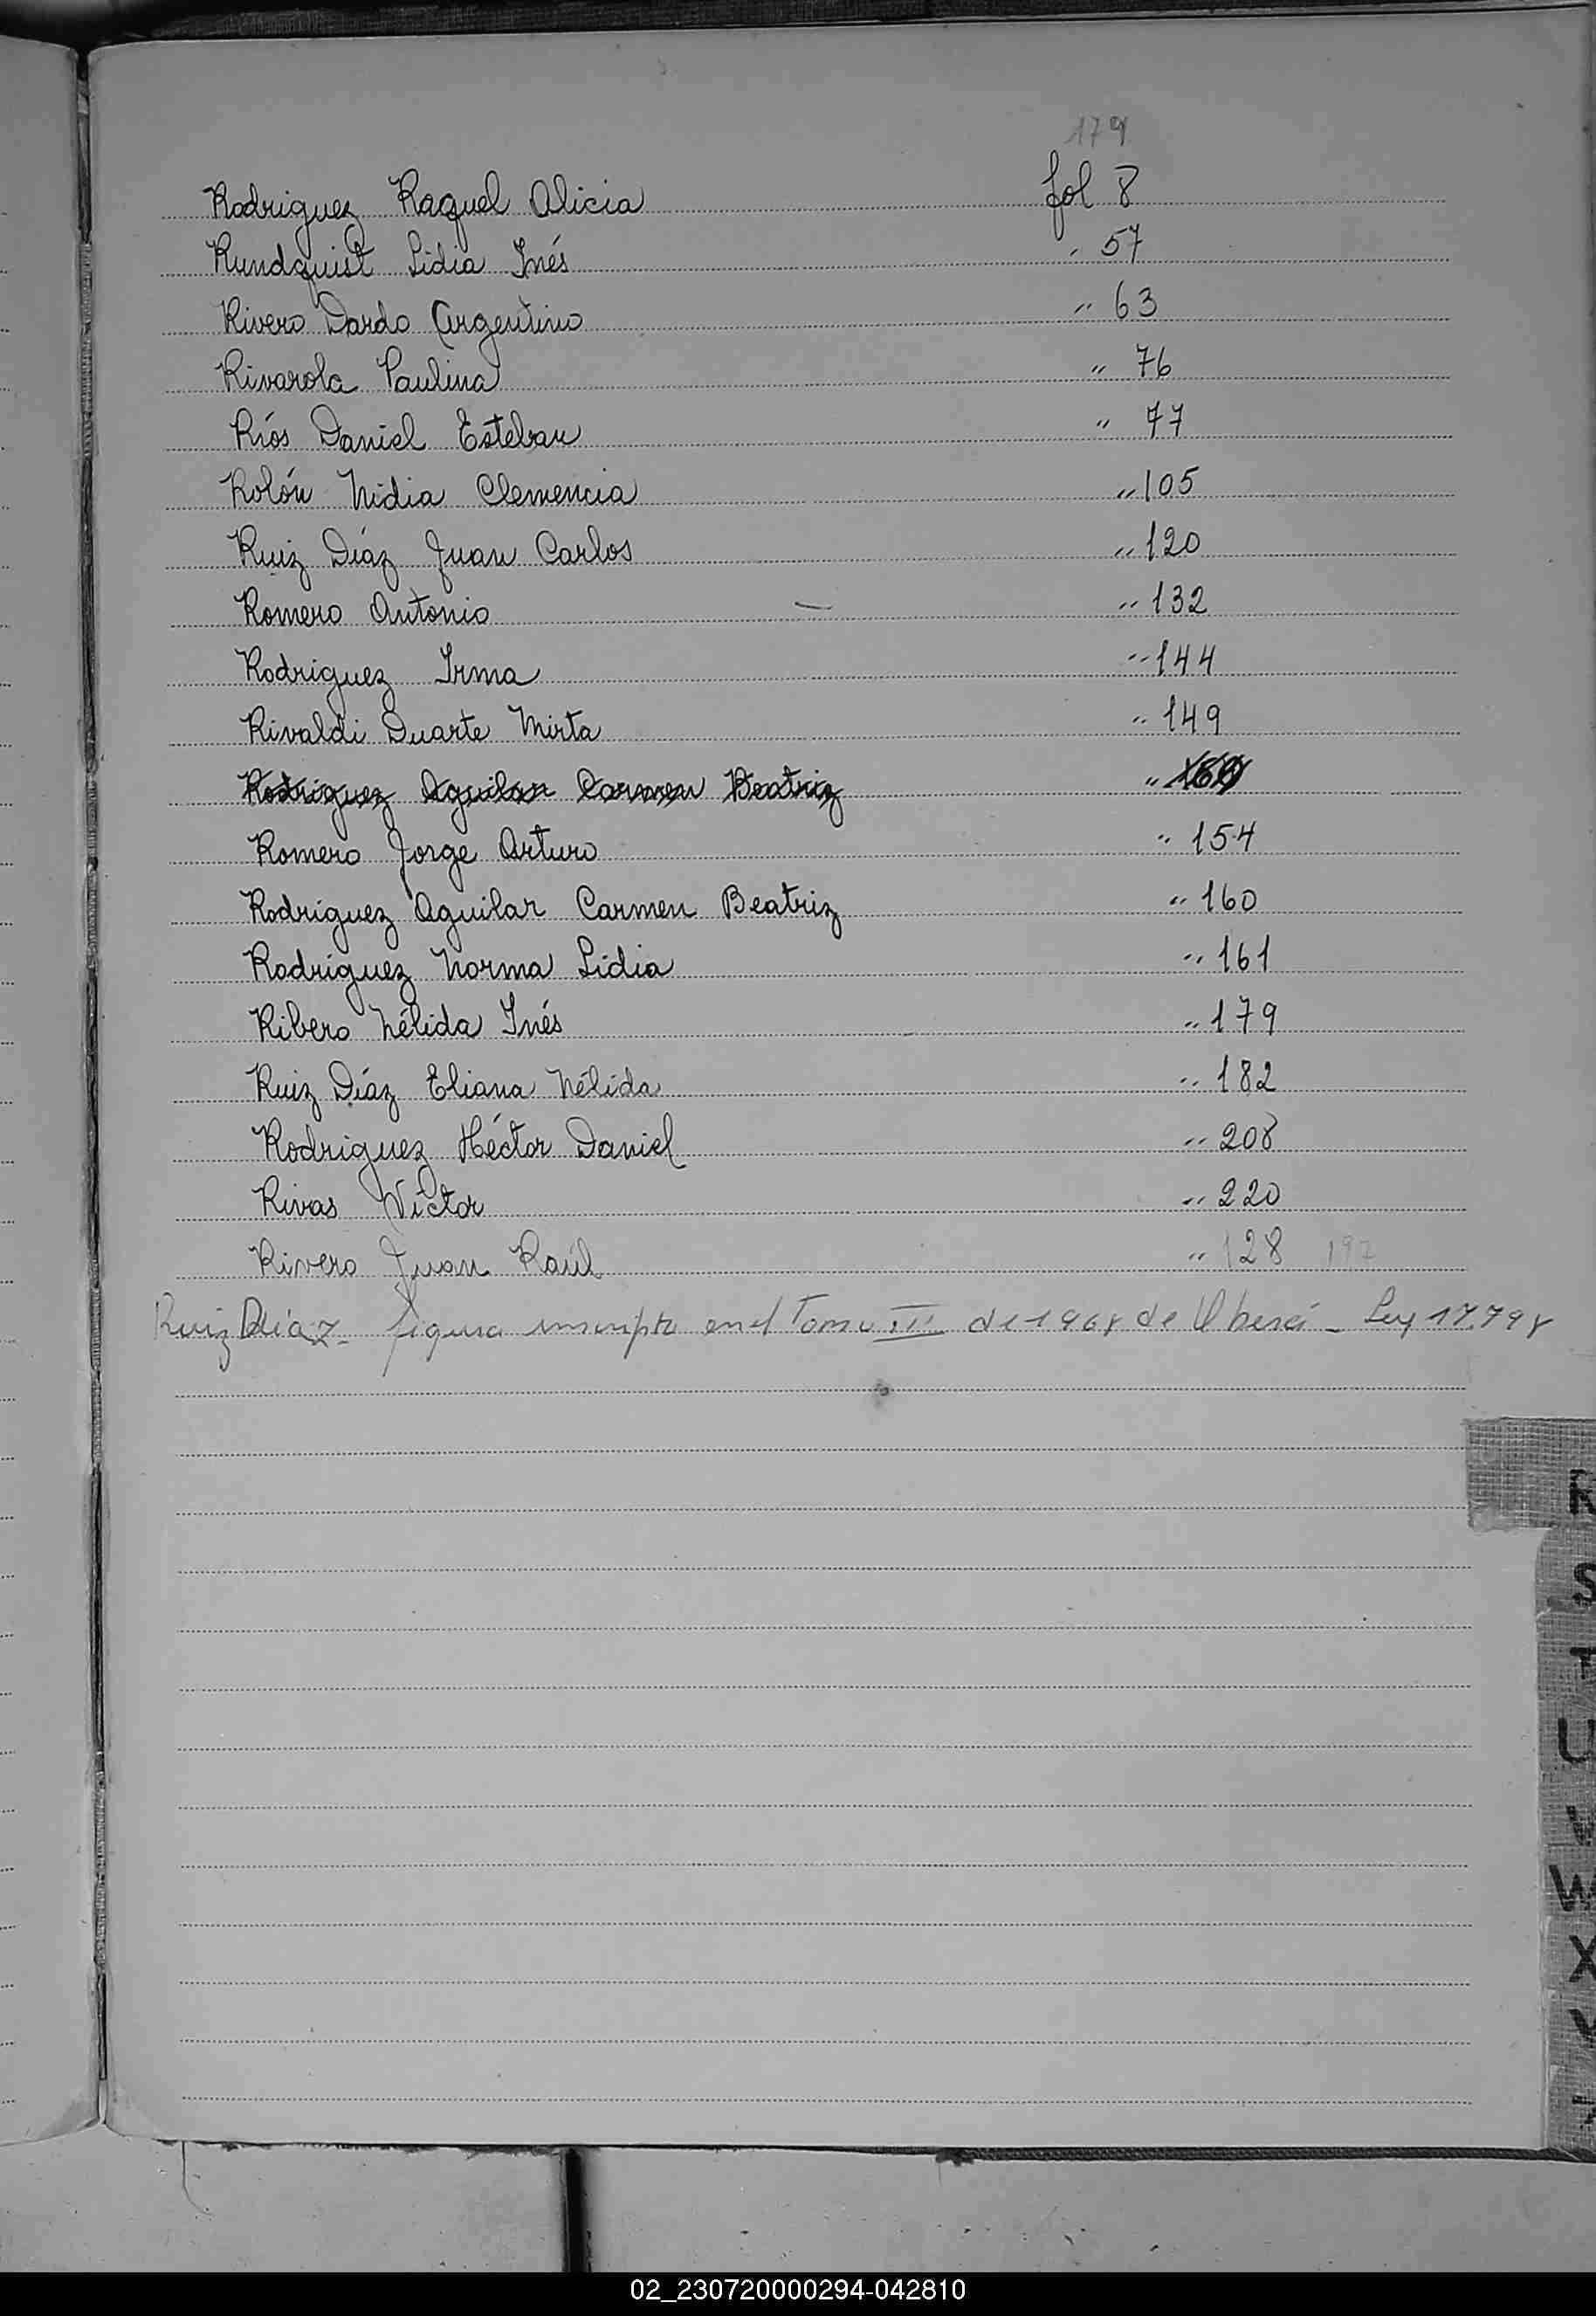 179
Rodriguez Raquel Alicia fol 8
Rundquist Lidia Inés " 57
Rivero Dardo Argentino " 63
Rivarola Paulina " 76
Ríos Daniel Esteban " 77
Rolón Nidia Clemencia " 105
Ruiz Díaz Juan Carlos " 120
Romero Antonio — " 132
Rodriguez Irma " 144
Rivaldi Duarte Mirta " 149
Rodriguez Aguilar Carmen Beatriz "
Romero Jorge Arturo " 154
Rodriguez Aguilar Carmen Beatriz " 160
Rodriguez Norma Lidia " 161
Ribero Nélida Inés " 179
Ruiz Díaz Eliana Nélida " 182
Rodriguez Héctor Daniel " 208
Rivas Víctor " 220
Rivero Juan Raúl " 128 197
Ruiz Diaz - figura inscripto en el Tomo II de 1968 de Oberá - Ley 17.798
R
S
T
U
V
W
X
Y
Z
02_230720000294-042810